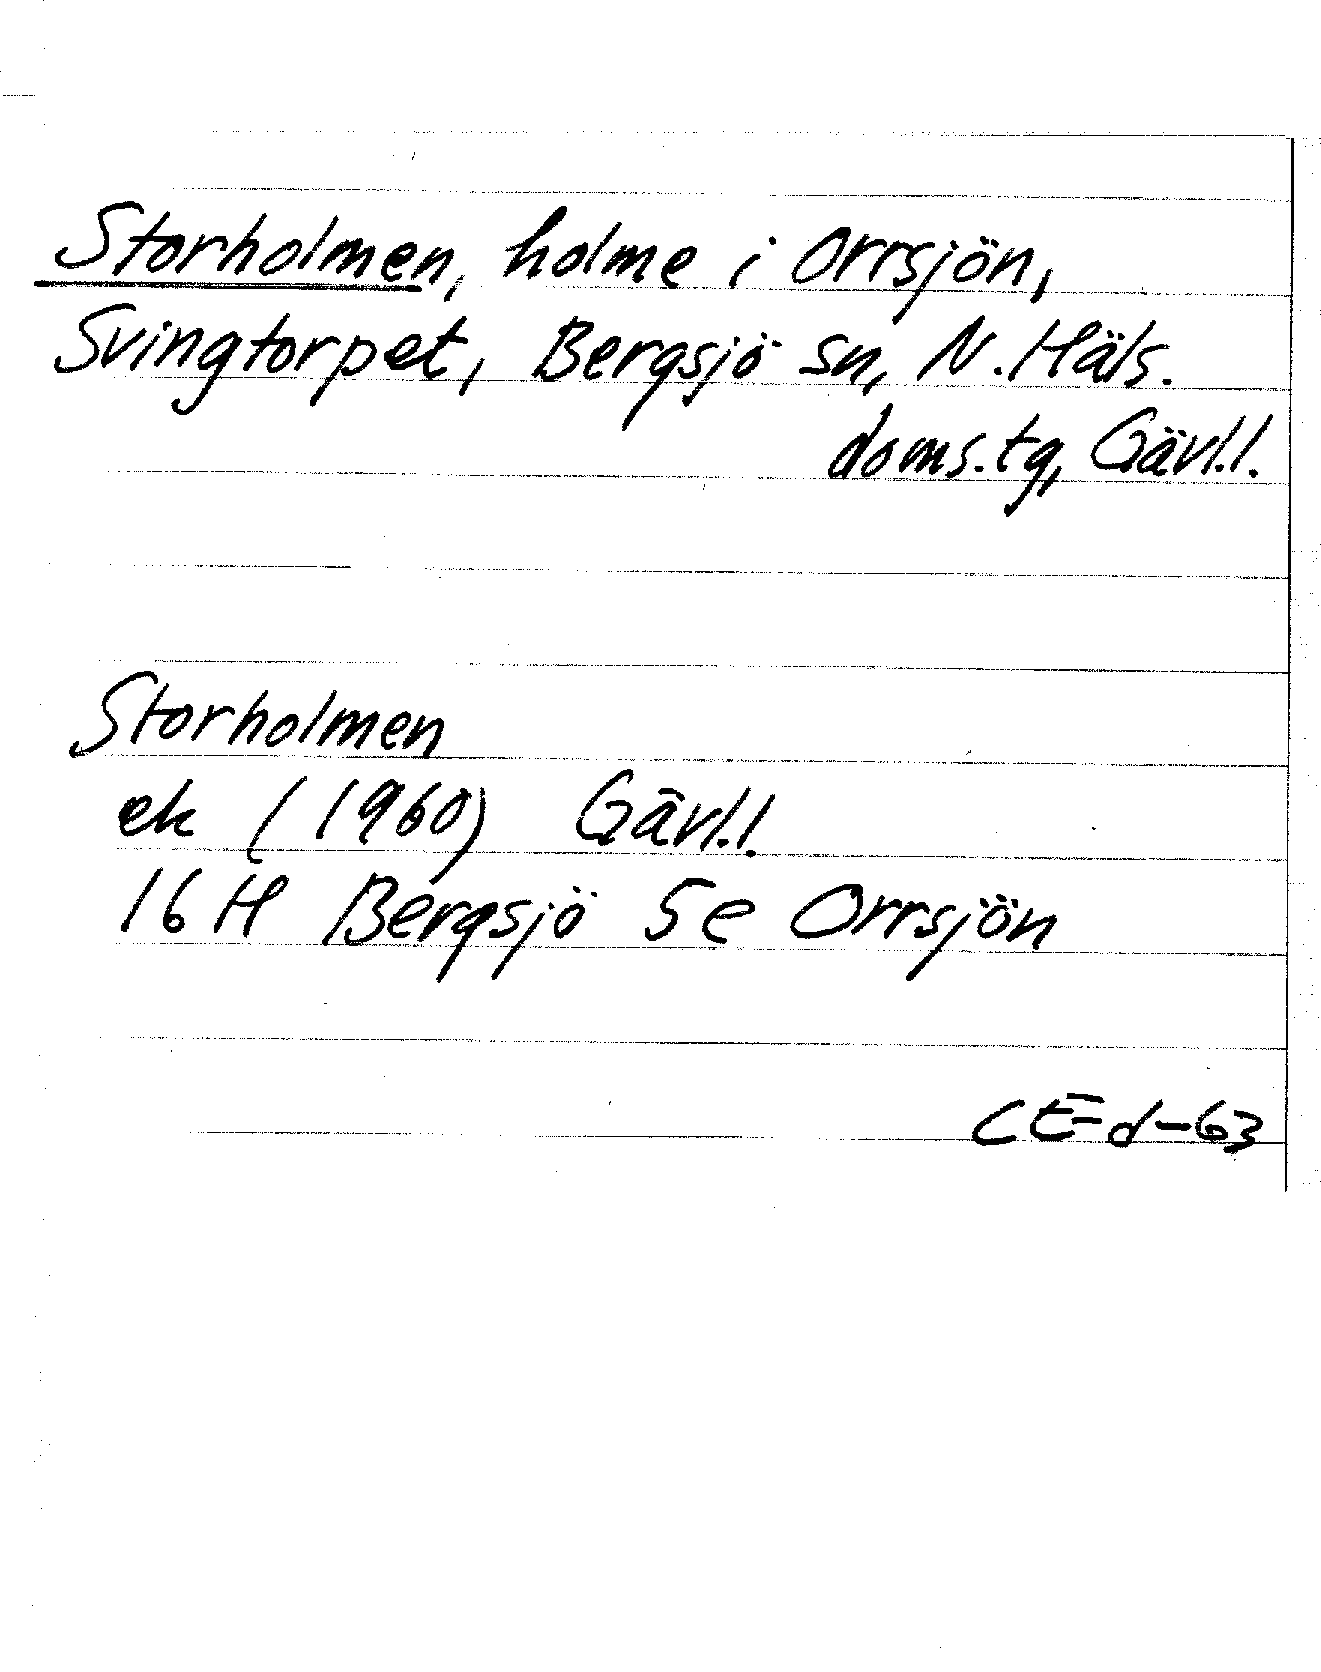 Storholmen, holme i Orrsjön,
Svingtorpet, Bergsjö sn, N. Häls.
doms.tg, Gävl.l.
Storholmen
ek (1960) Gävl.l.
16 H Bergsjö 5e Orrsjön
CEEd-63